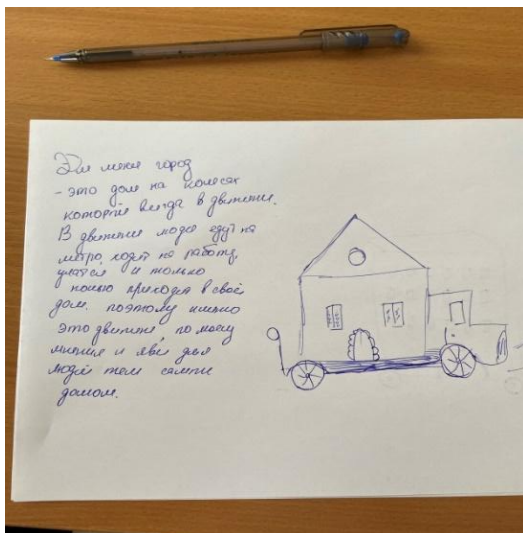 Для меня город
- это дом на колесах
который всегда в движении.
В движение люди едут на
метро, ходят на работу,
учатся и только
ночью приходят в свой
дом. поэтому именно
это движение, по моему
мнения и яв. для
людей тем самым
домом.